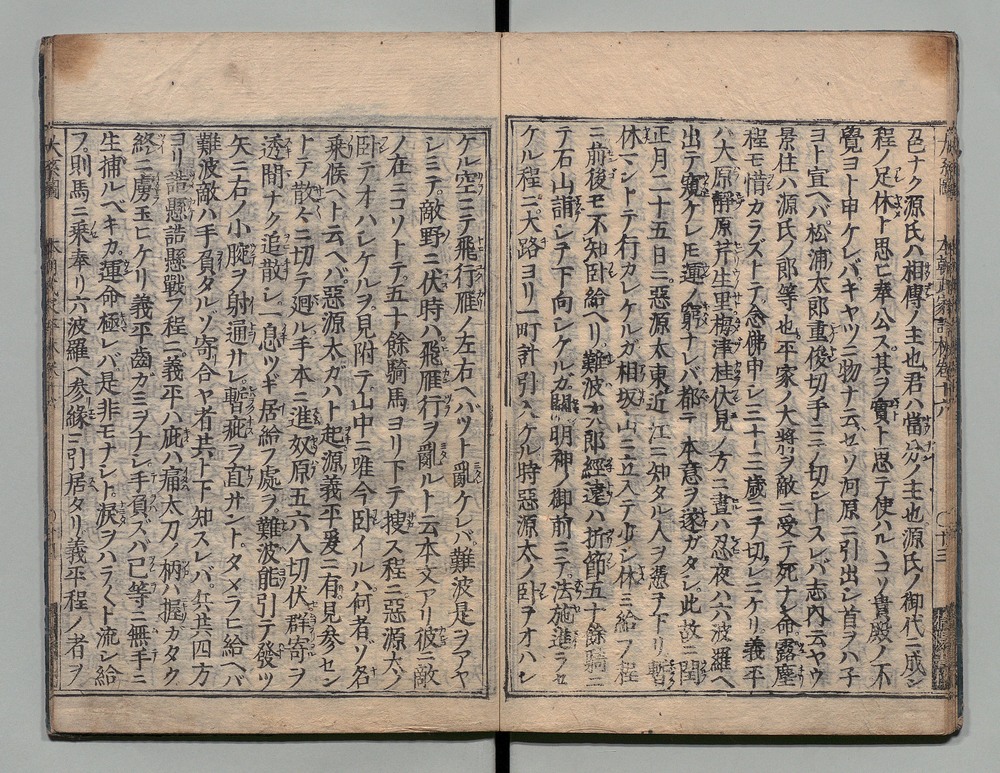 邑ナク源氏ハ相傳ノ主也君ハ當分ノ主也源氏ノ御代ニ成シ
程ノ足休ト思ヒ奉公ス其ヲ實ト思テ使ハルヽコソ貴殿ノ不
覺ヨト申ケレバキヤツニ物ナ云セソ河原ニ引出シ首ヲハ子
ヨト宜ヘバ松浦太郎重俊切手ニテ切ントスレバ志内云ヤウ
景住ハ源氏ノ郎等也平家ノ大將ヲ敵ニ受テ死ナン命露塵
程モ惜カラズトテ念佛申シ三十二歳ニテ切レニケリ義平
ハ大原靜原芹生里梅津桂伏見ノ方ニ晝ハ忍夜ハ六波羅ヘ
出テ窺ケレモ運ノ窮ナレバ都テ本意ヲ遂ガタシ此故ニ閏
正月二十五日ニ惡源太東近江ニ知タル人ヲ憑テ下リ暫
休マントテ行カレケルガ相坂山ニ立入テ少シ休ミ給フ程
ニ前後モ不知臥給ヘリ難波六郎經遠ハ折節五十餘騎ニ
テ石山詣シテ下向シケルガ關明神ノ御前ニテ法施進ラセ
ケル程ニ大路ヨリ一町計引入ケル時惡源太ノ臥ヲオハシ
ケル空ニテ飛行雁ノ左右ヘハツト亂ケレバ難波是ヲアヤ
シミテ敵野ニ伏時ハ飛雁行ヲ亂ルト云本文アリ彼ニ敵
ノ在ニコソトテ五十餘騎馬ヨリ下テ搜ス程ニ惡源太ノ
臥テオハレケルヲ見附テ山中ニ唯今臥イルハ何者ソ名
乘候ヘト云ヘバ惡源太ガハト起源義平爰ニ有見參セン
トテ散々ニ切テ廻ル手本ニ進奴原五六人切伏群寄ヲ
透間ナク追散シ一息ツギ居給フ處ヲ難波能引テ發ツ
矢ニ右ノ小腕ヲ射通サレ暫疵ヲ直サントタメラヒ給ヘバ
難波敵ハ手負タルゾ寄合ヤ者共ト下知スレバ兵共四方
ヨリ詰懸詰懸戰フ程ニ義平ハ疵ハ痛太刀ノ柄ハ握ガタク
終ニ虜玉ヒケリ義平齒ガミヲナシ手負ズハ己等ニ無手ニ
生捕ルベキカ運命極レバ是非モナシト涙ヲハラ〱ト流シ給
フ則馬ニ乘奉リ六波羅ヘ參縁ニ引居タリ義平程ノ者ヲ